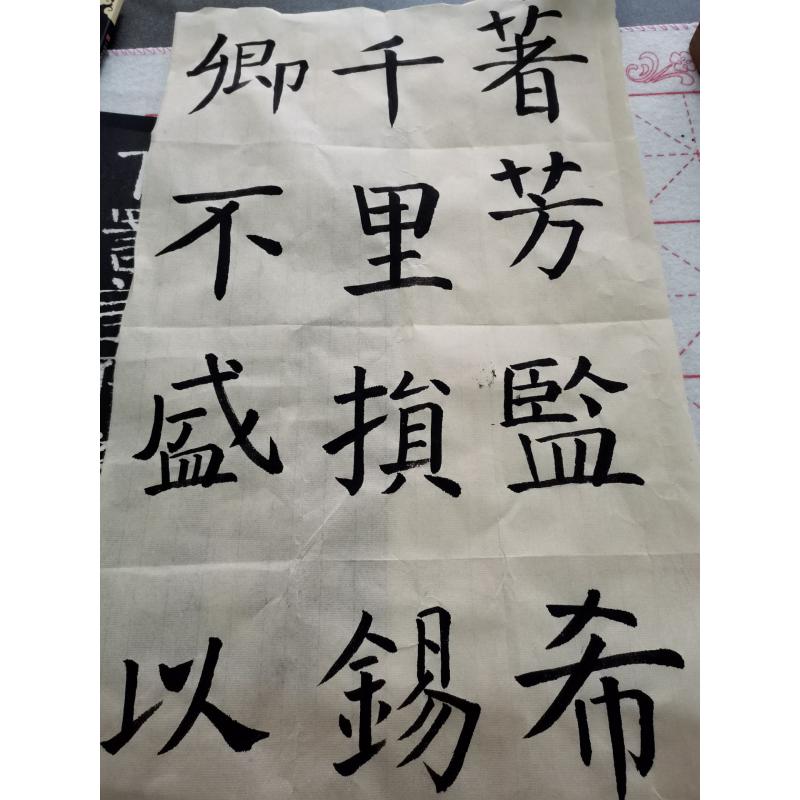 著芳監希
千里損錫
卿不盛以